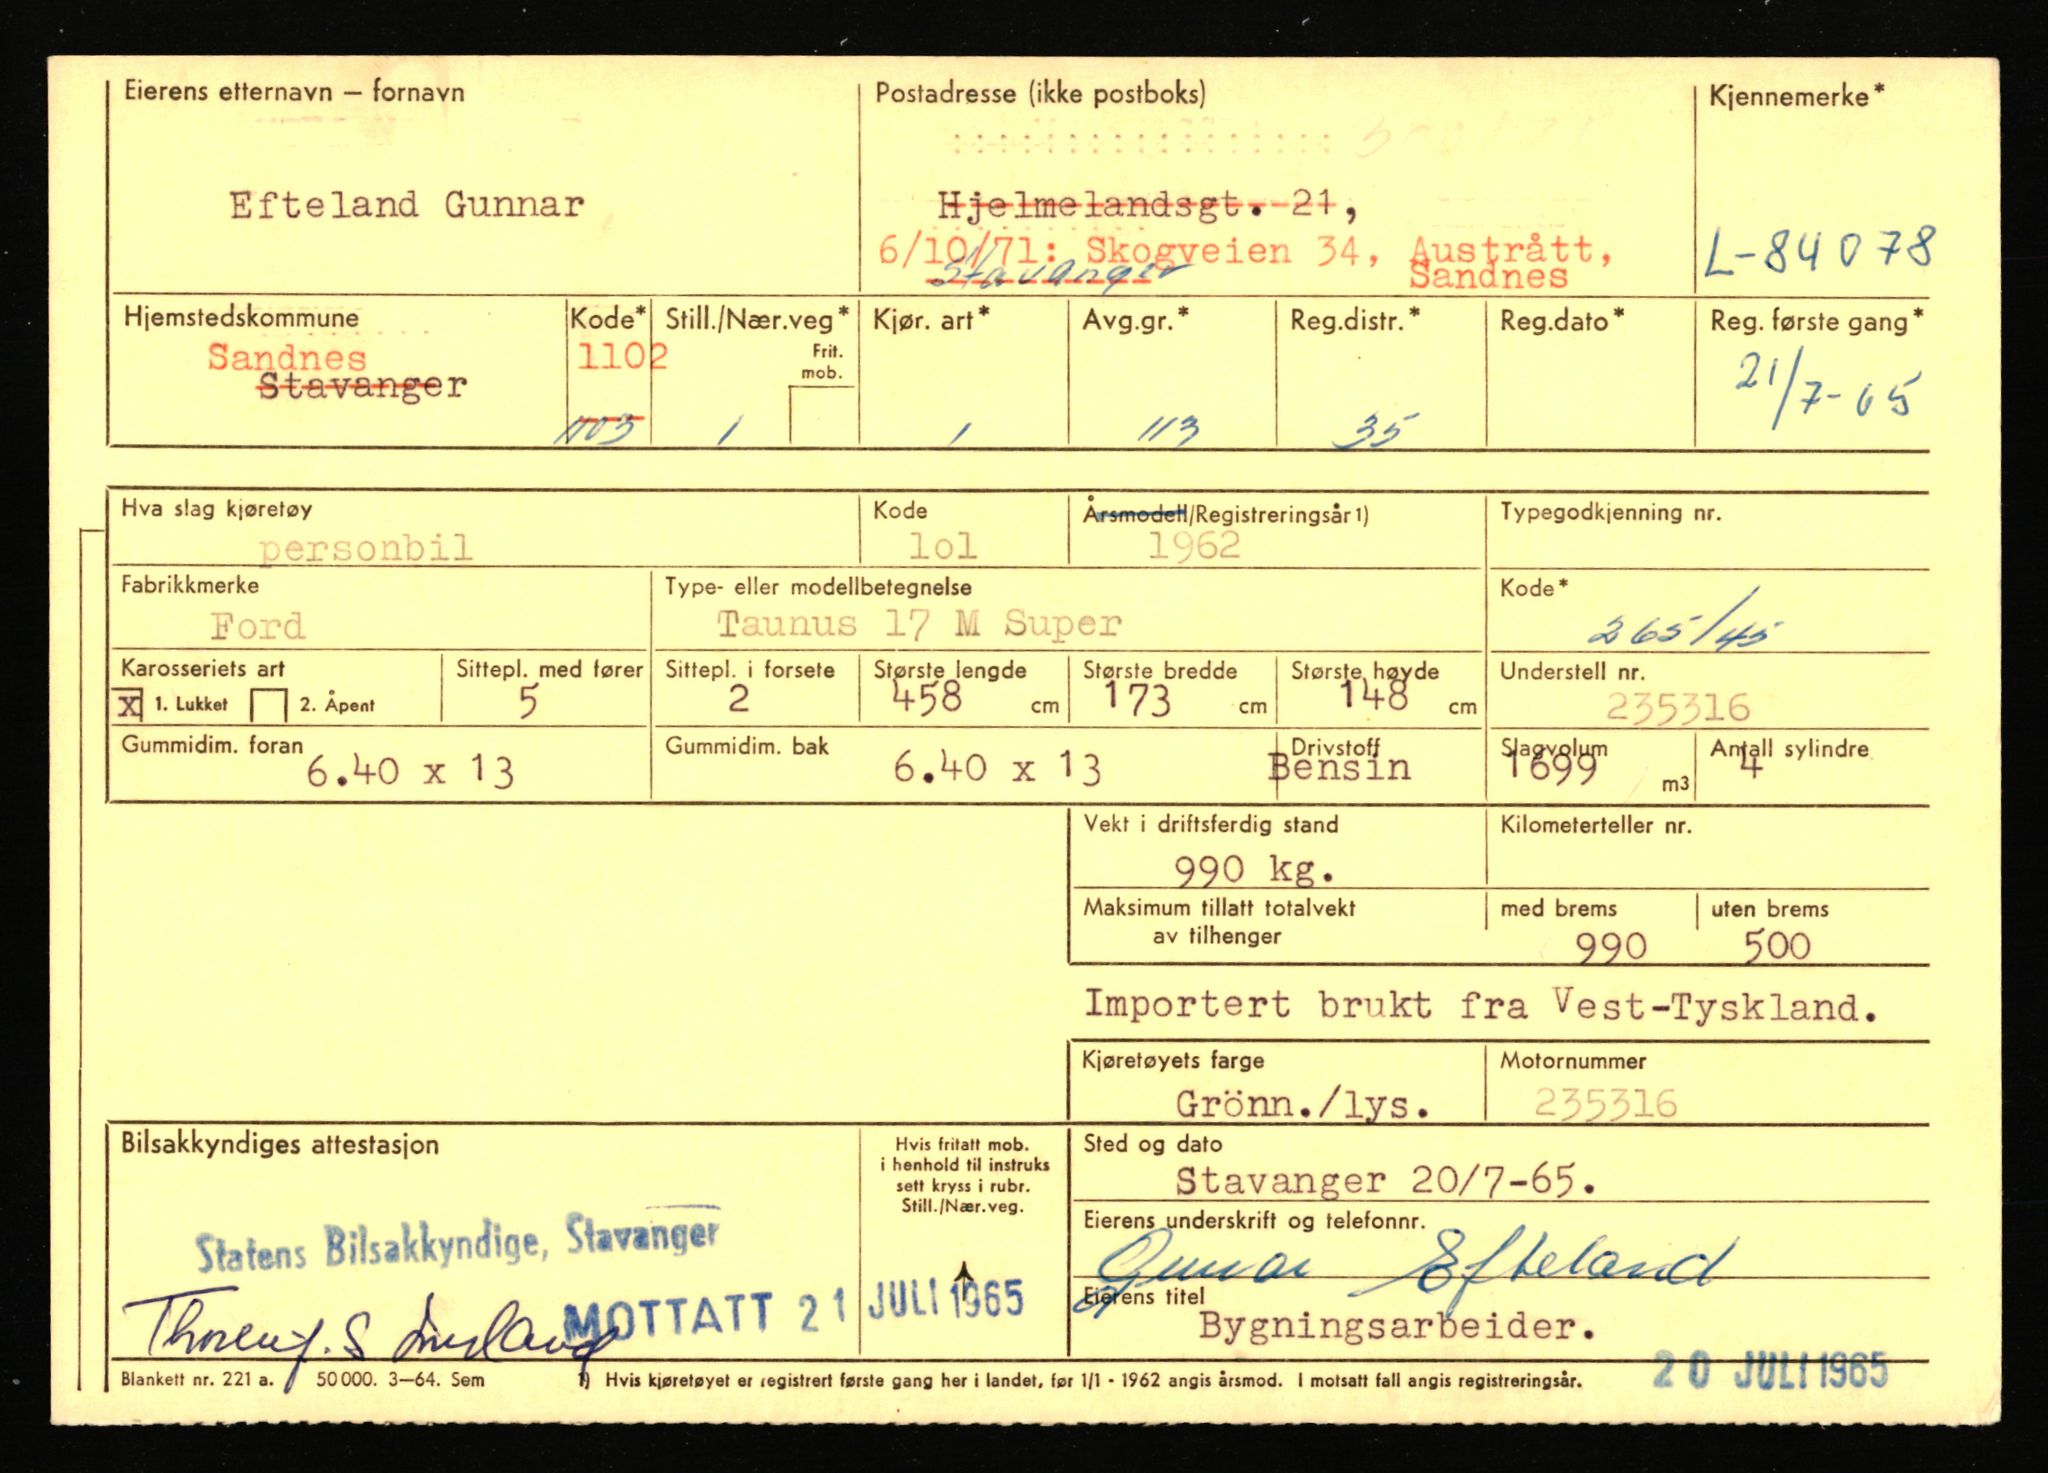 Eierens etternavn – fornavn Postadresse (ikke postboks) Kjennemerke*
Efteland Gunnar Hjelmelandsgt. 21,
6/10/71: Skogveien 34, Austrått,
Stavanger Sandnes L-84078
Hjemstedskommune Kode* Still./Nær.veg* Kjør. art* Avg.gr.* Reg.distr.* Reg.dato* Reg. første gang*
Sandnes 1102 Frit. mob. 21/7-65
Stavanger
1103 1 1 113 35
Hva slag kjøretøy Kode Årsmodell/Registreringsår 1) Typegodkjenning nr.
personbil lol 1962
Fabrikkmerke Type- eller modellbetegnelse Kode*
Ford Taunus 17 M Super 265/45
Karosseriets art Sittepl. med fører Sittepl. i forsete Største lengde Største bredde Største høyde Understell nr.
X 1. Lukket 2. Åpent 5 2 458 cm 173 cm 148 cm 235316
Gummidim. foran Gummidim. bak Drivstoff Slagvolum Antall sylindre
6.40 x 13 6.40 x 13 Bensin 1699 m3 4
Vekt i driftsferdig stand Kilometerteller nr.
990 kg.
Maksimum tillatt totalvekt med brems uten brems
av tilhenger 990 500
Importert brukt fra Vest-Tyskland.
Kjøretøyets farge Motornummer
Grönn./lys. 235316
Bilsakkyndiges attestasjon Hvis fritatt mob. Sted og dato
i henhold til instruks
sett kryss i rubr. Stavanger 20/7-65.
Still./Nær.veg.
Eierens underskrift og telefonnr.
Statens Bilsakkyndige, Stavanger
Gunnar Efteland
MOTTATT 21 JULI 1965 Eierens titel
Bygningsarbeider.
Blankett nr. 221 a. 50 000. 3–64. Sem 1) Hvis kjøretøyet er registrert første gang her i landet, før 1/1 - 1962 angis årsmod. I motsatt fall angis registreringsår. 20 JULI 1965